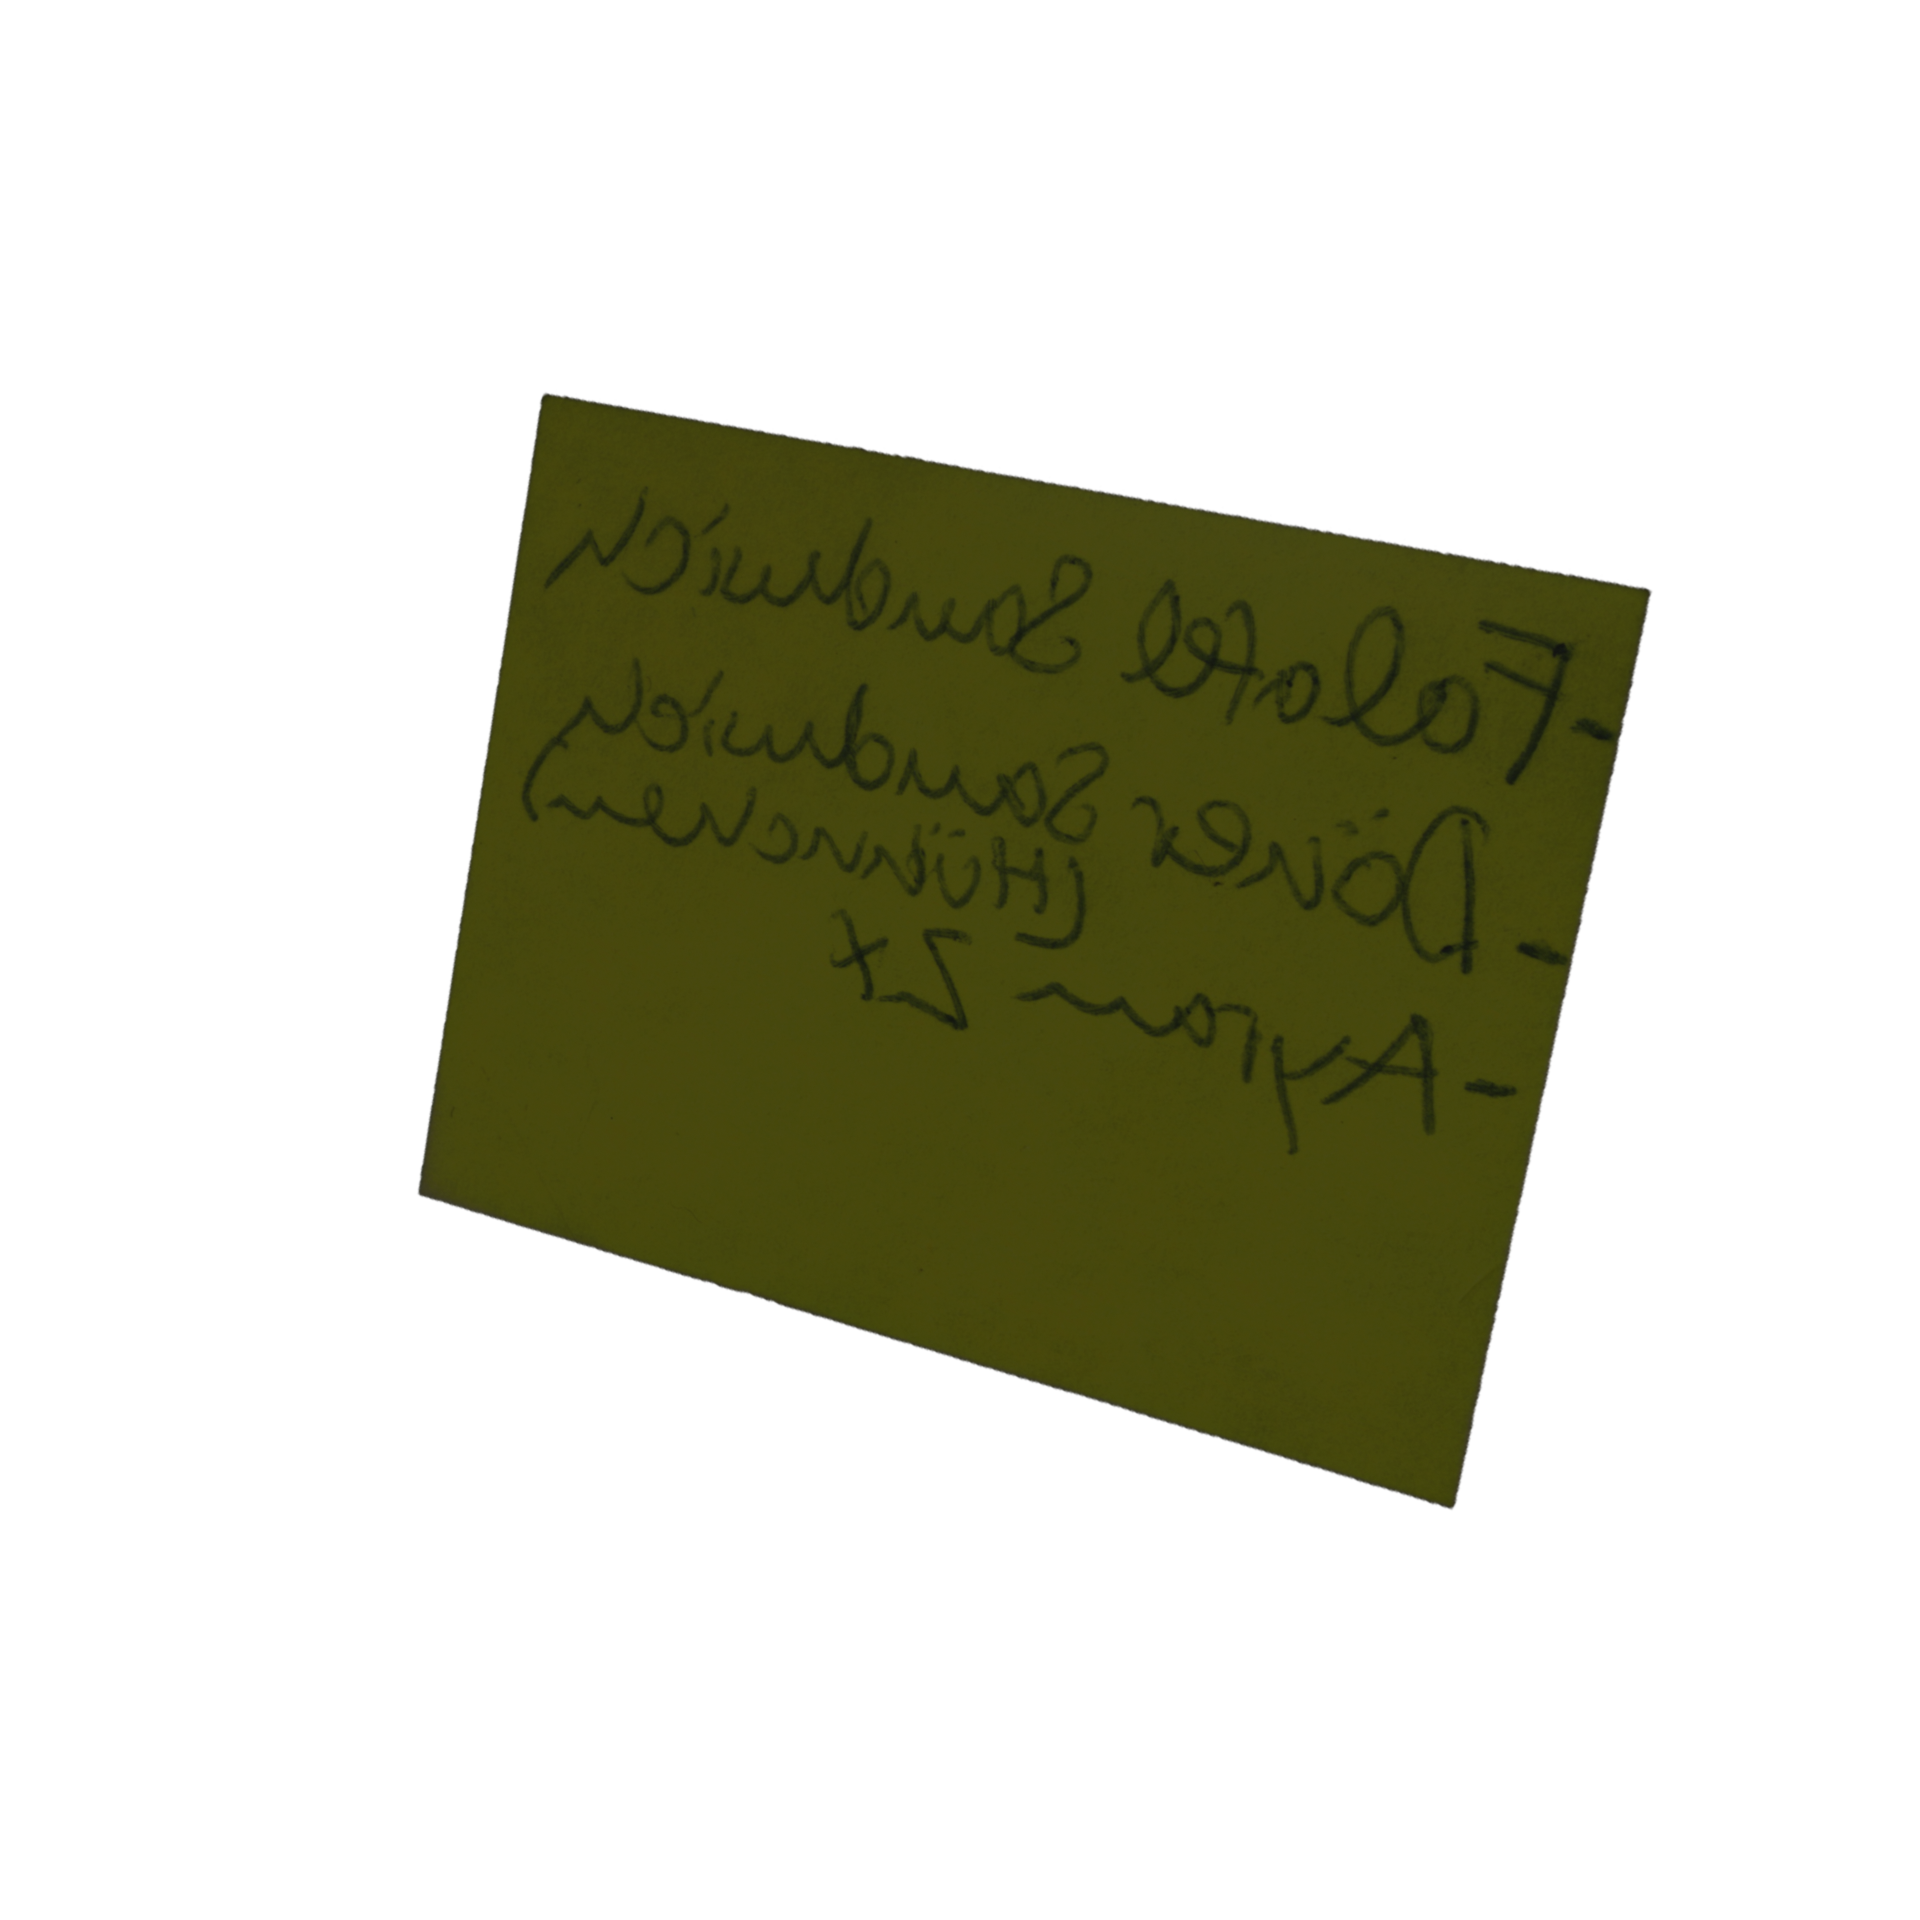 -Falafel Sandwich
-Döner Sandwich
(Hühnchen)
-Ayran 2x